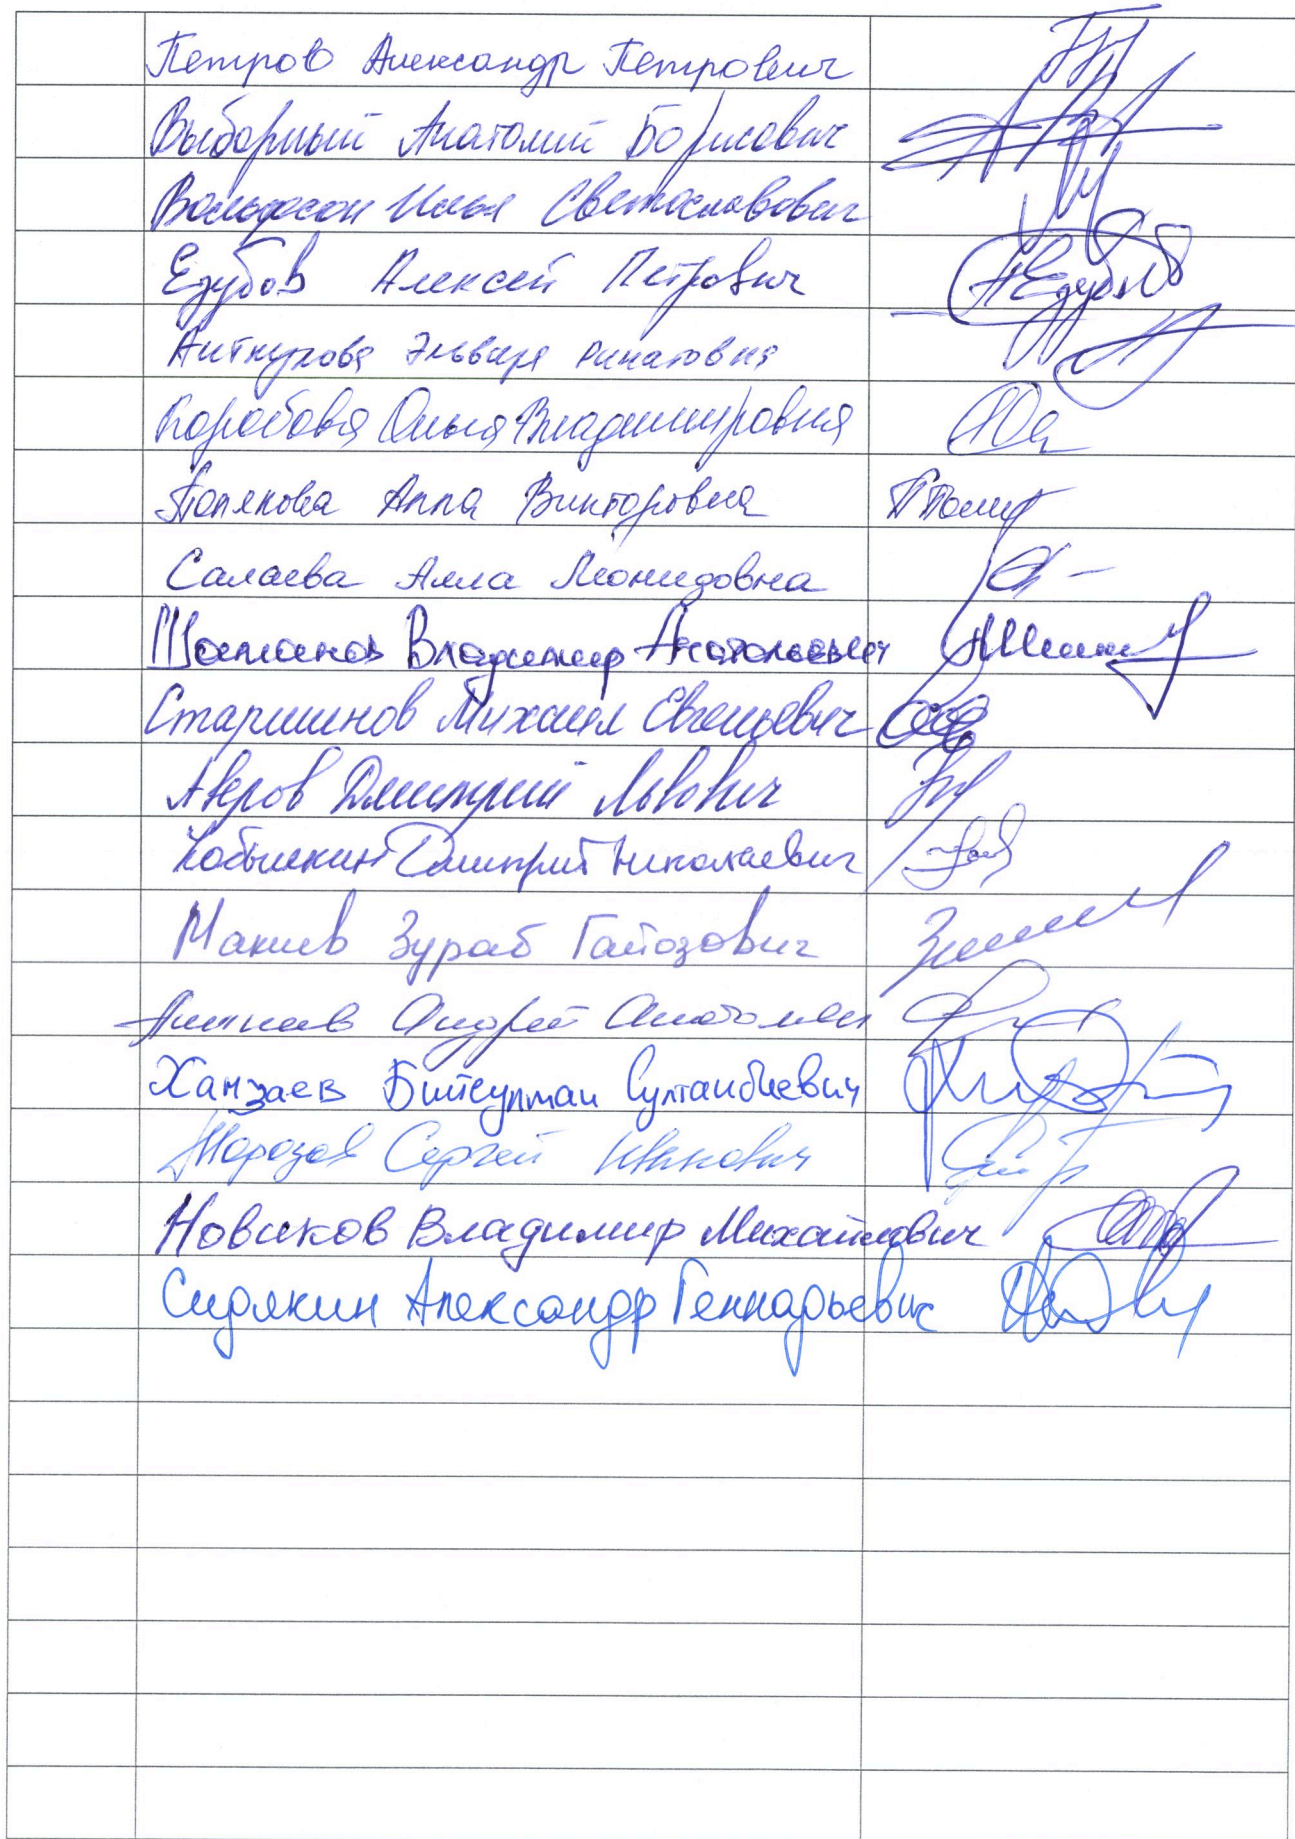 Петров Александр Петрович
Выборный Анатолий Борисович
Вольфсон Илья Светославович
Езубов Алексей Петрович
Аиткулова Эльвира Ринатовна
Коробова Ольга Владимировна
Полякова Алла Викторовна
Салаева Алла Леонидовна
Шаманов Владимир Анатольевич
Старшинов Михаил Евгеньевич
Аверов Дмитрий Львович
Кобылкин Дмитрий Николаевич
Макиев Зураб Гайозович
Андрей
Хамзаев Бийсултан Султанбиевич
Морозов Сергей Иванович
Новиков Владимир Михайлович
Сидякин Александр Геннадьевич